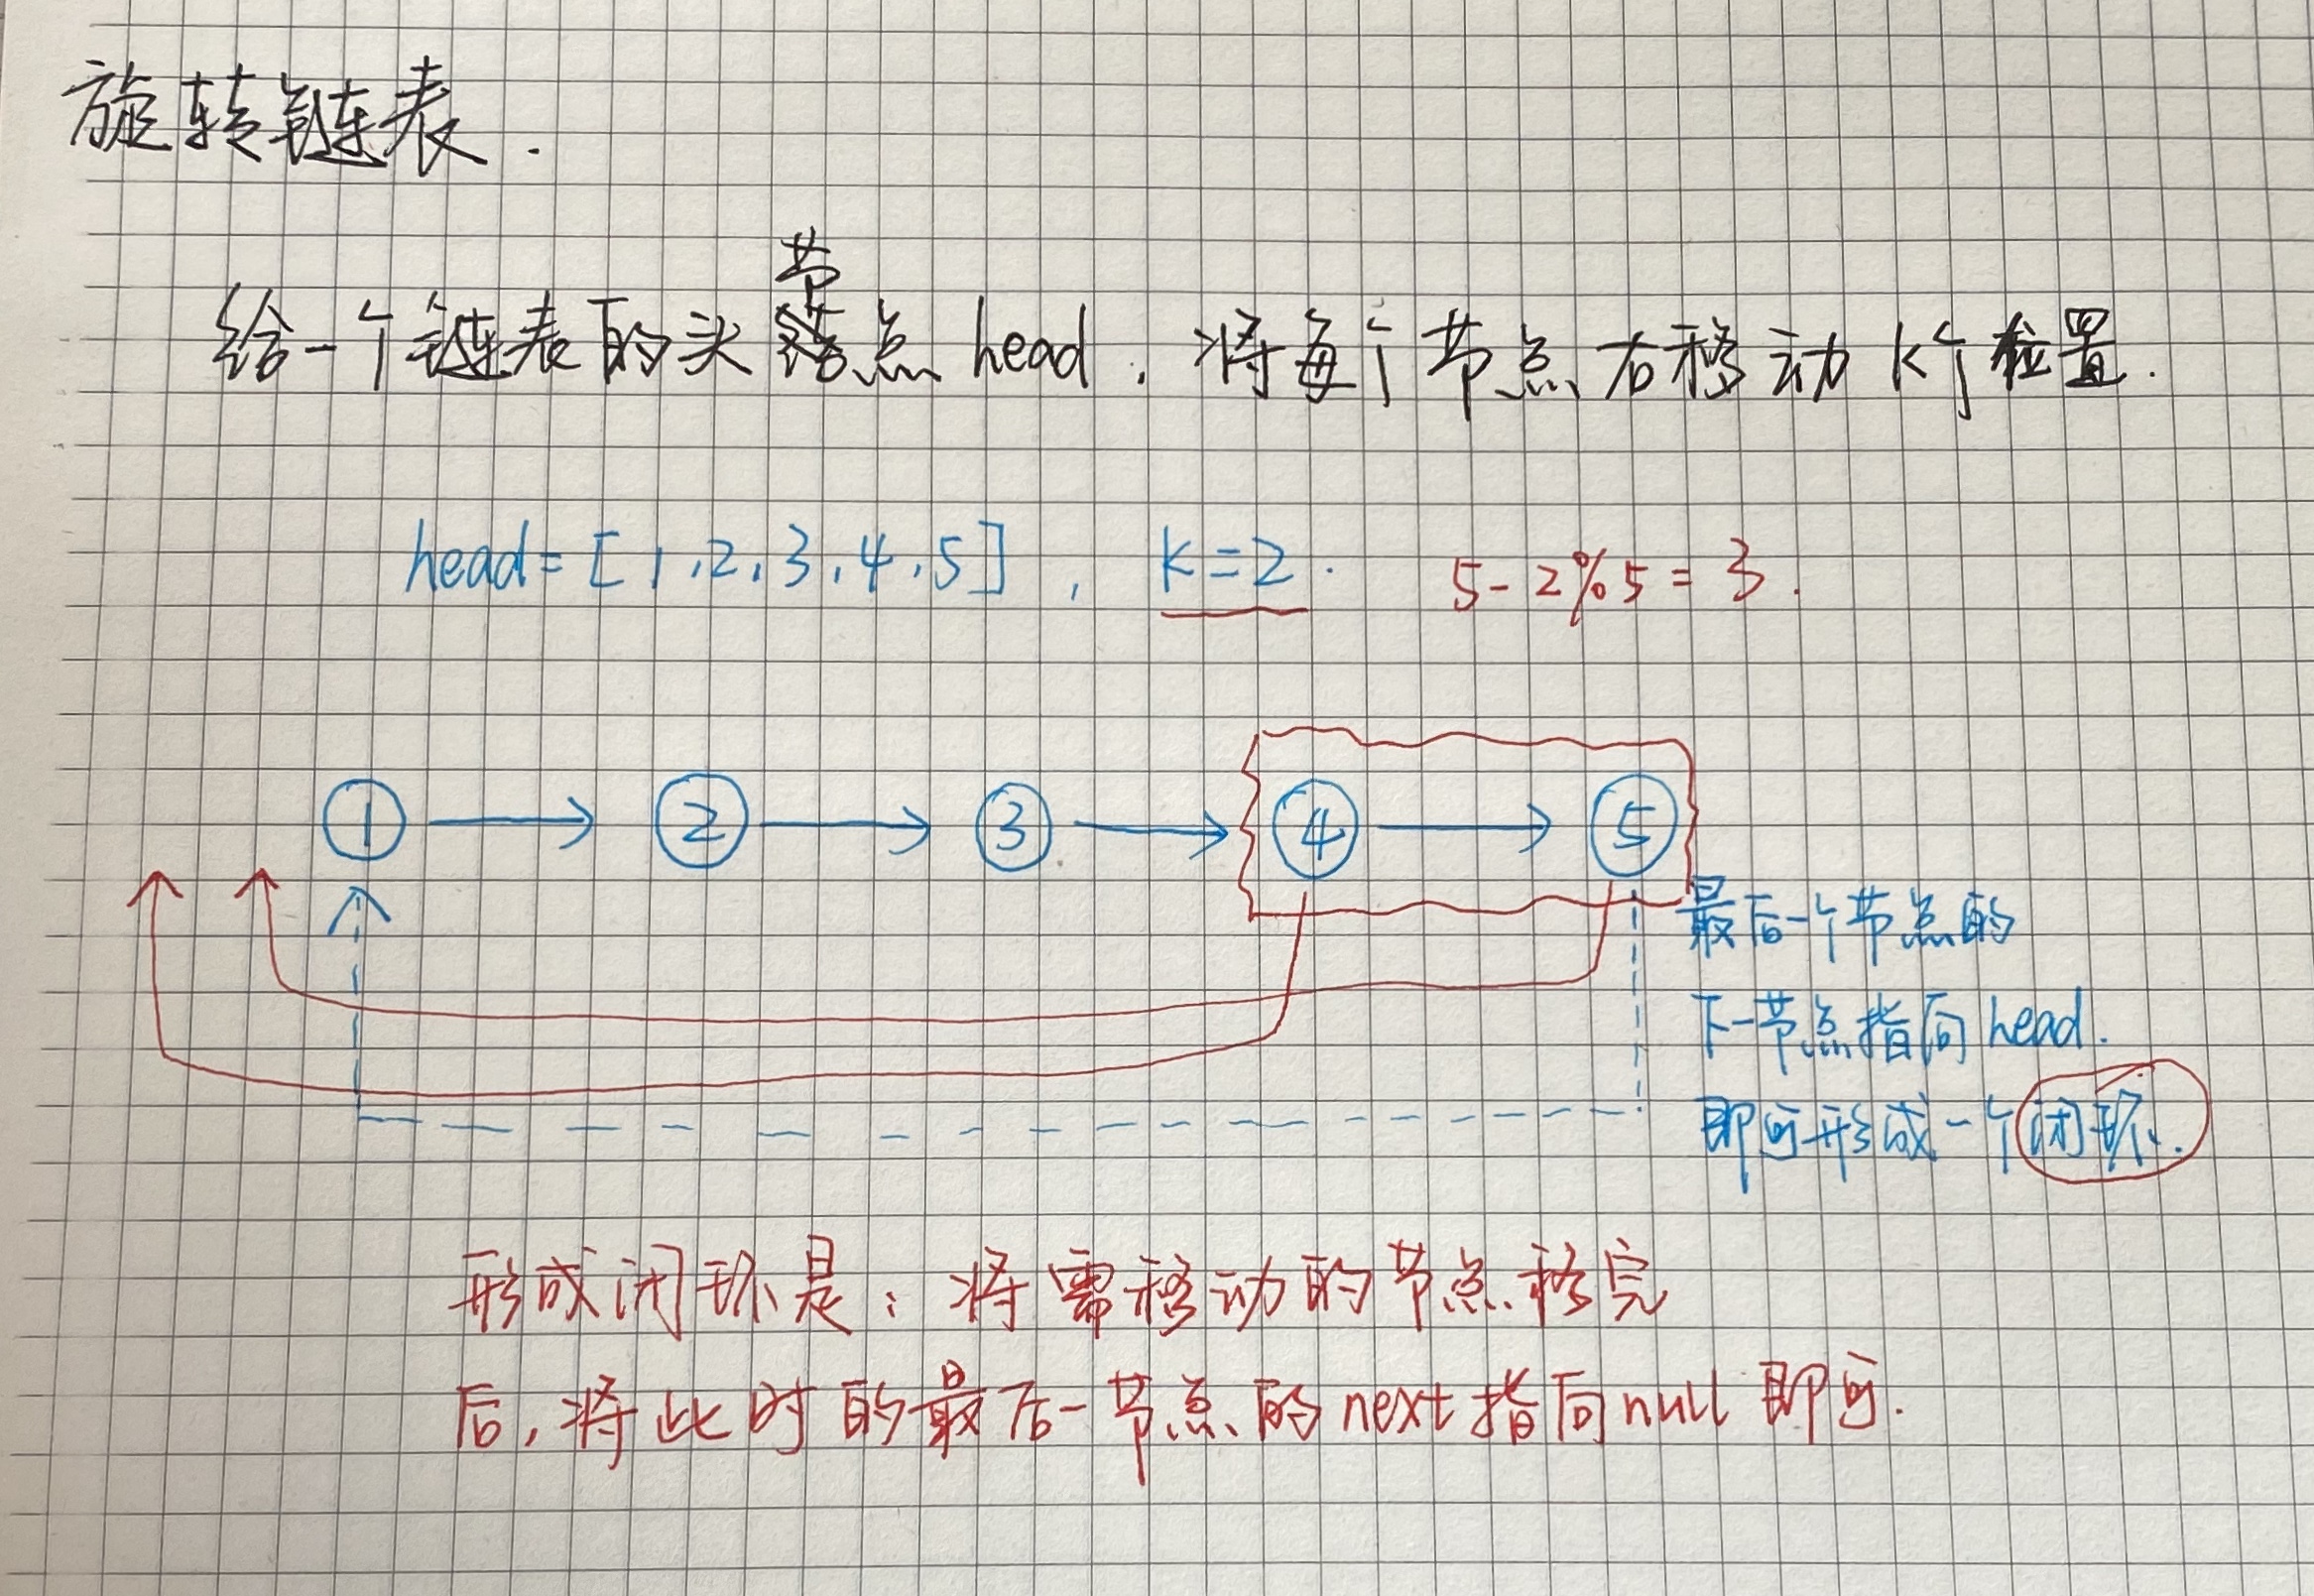 旋转链表.
给一个链表的头节点head,将每个节点右移动k个位置.
head=[1,2,3,4,5], k=2. 5-2%5=3.
1 2 3 4 5
最后一个节点的
下一节点指向head.
即可形成一个闭环.
形成闭环是:将需移动的节点移完
后,将此时的最后一节点的next指向null即可.